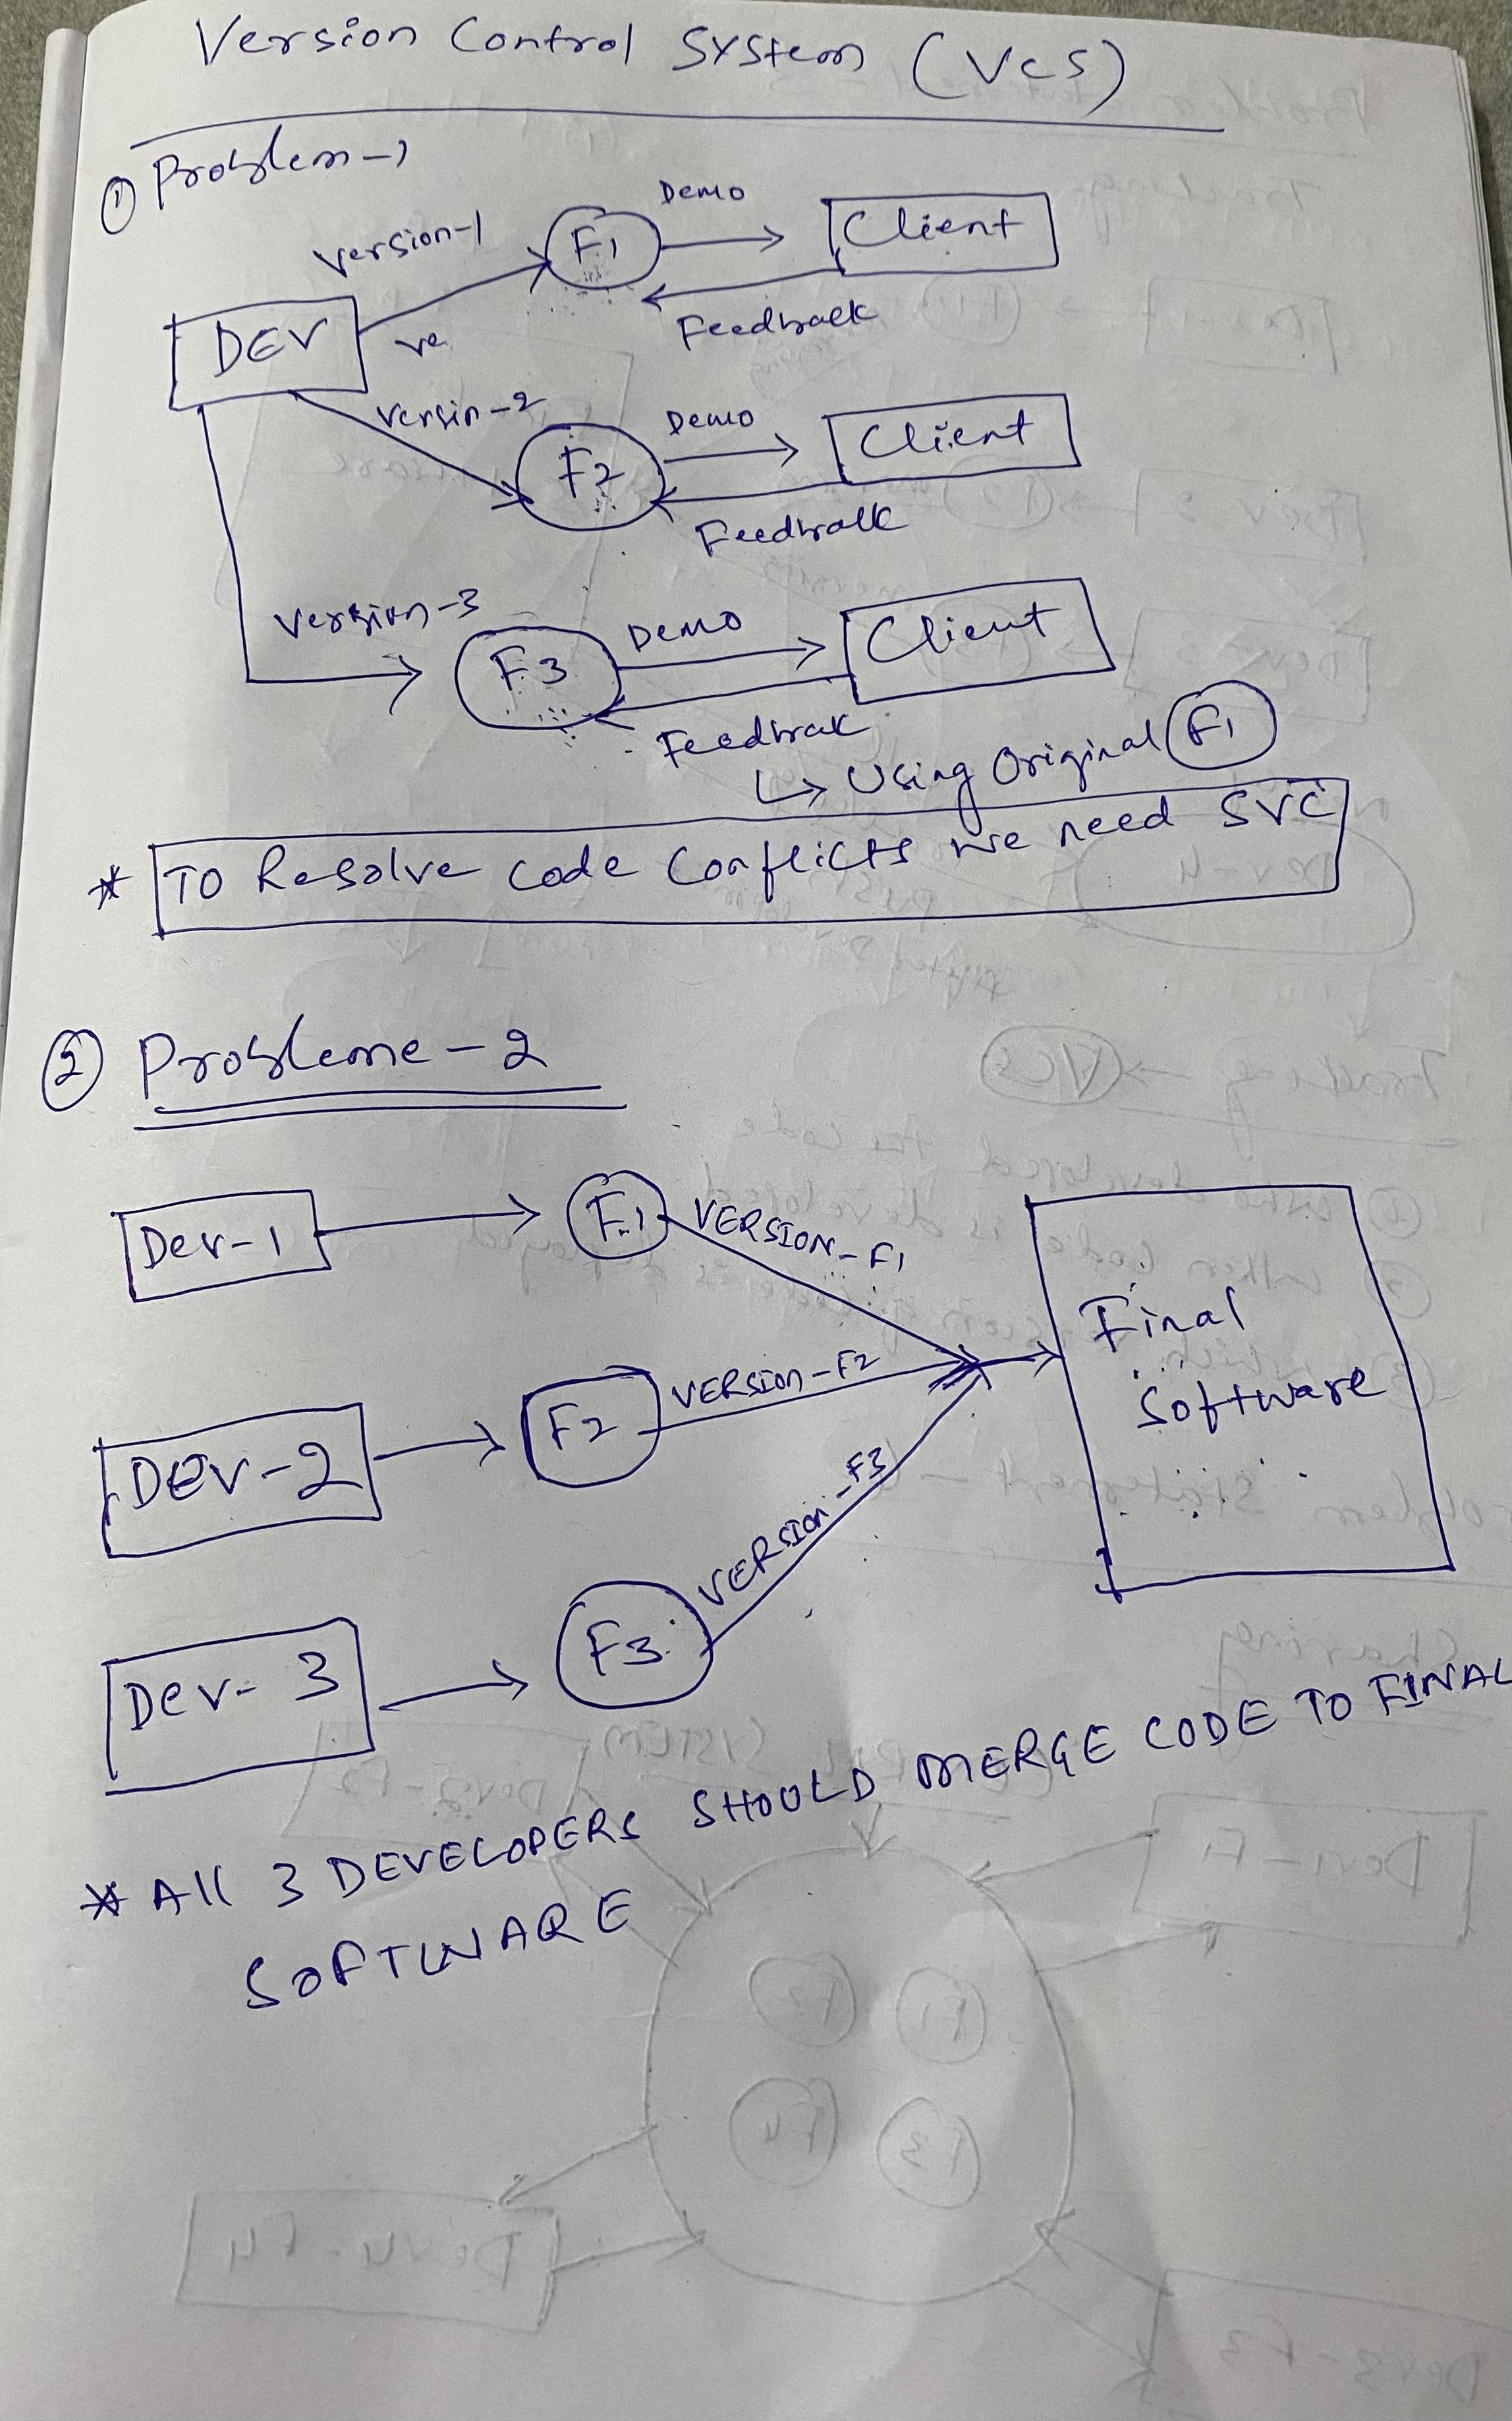 Version Control System (VCS)
① Problem-1
Version-1
F1
Demo
Client
Feedback
DEV
ve
Versin-2
F2
Demo
Client
Feedback
Version-3
F3
DEMO
Client
Feedbak
↳ Using Original F1
* TO Resolve code Conflicts we need SVC
② Probleme-2
Dev-1
F1
VERSION-F1
Final
Software
DEV-2
F2
VERSION-F2
Dev-3
F3
VERSION-F3
* All 3 DEVELOPERS SHOULD MERGE CODE TO FINAL
SOFTWARE